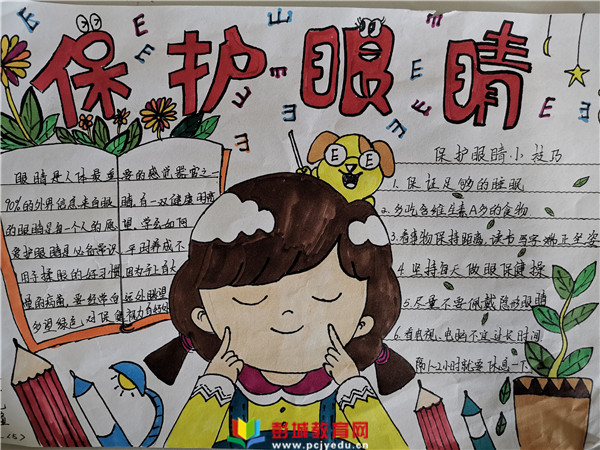 保护眼睛
眼睛是人体最重要的感觉器官之一
90%的外界信息来自眼睛,有一双健康明亮
的眼睛是每个人的愿望,学会如何
爱护眼睛是必备常识,平时养成不
用手揉眼的好习惯,因为手上有大
量的病菌,要经常向远处眺望
多望绿色,对保健视力有好处
保护眼睛小技巧
1.保证足够的睡眠
2.多吃含维生素A多的食物
3.看事物保持距离,读书写字端正坐姿
4.坚持每天做眼保健操
5.尽量不要佩戴隐形眼睛
6.看电视、电脑不宜过长时间
隔1-2小时就要休息一下
E
彭城教育网
www.pcjyedu.cn